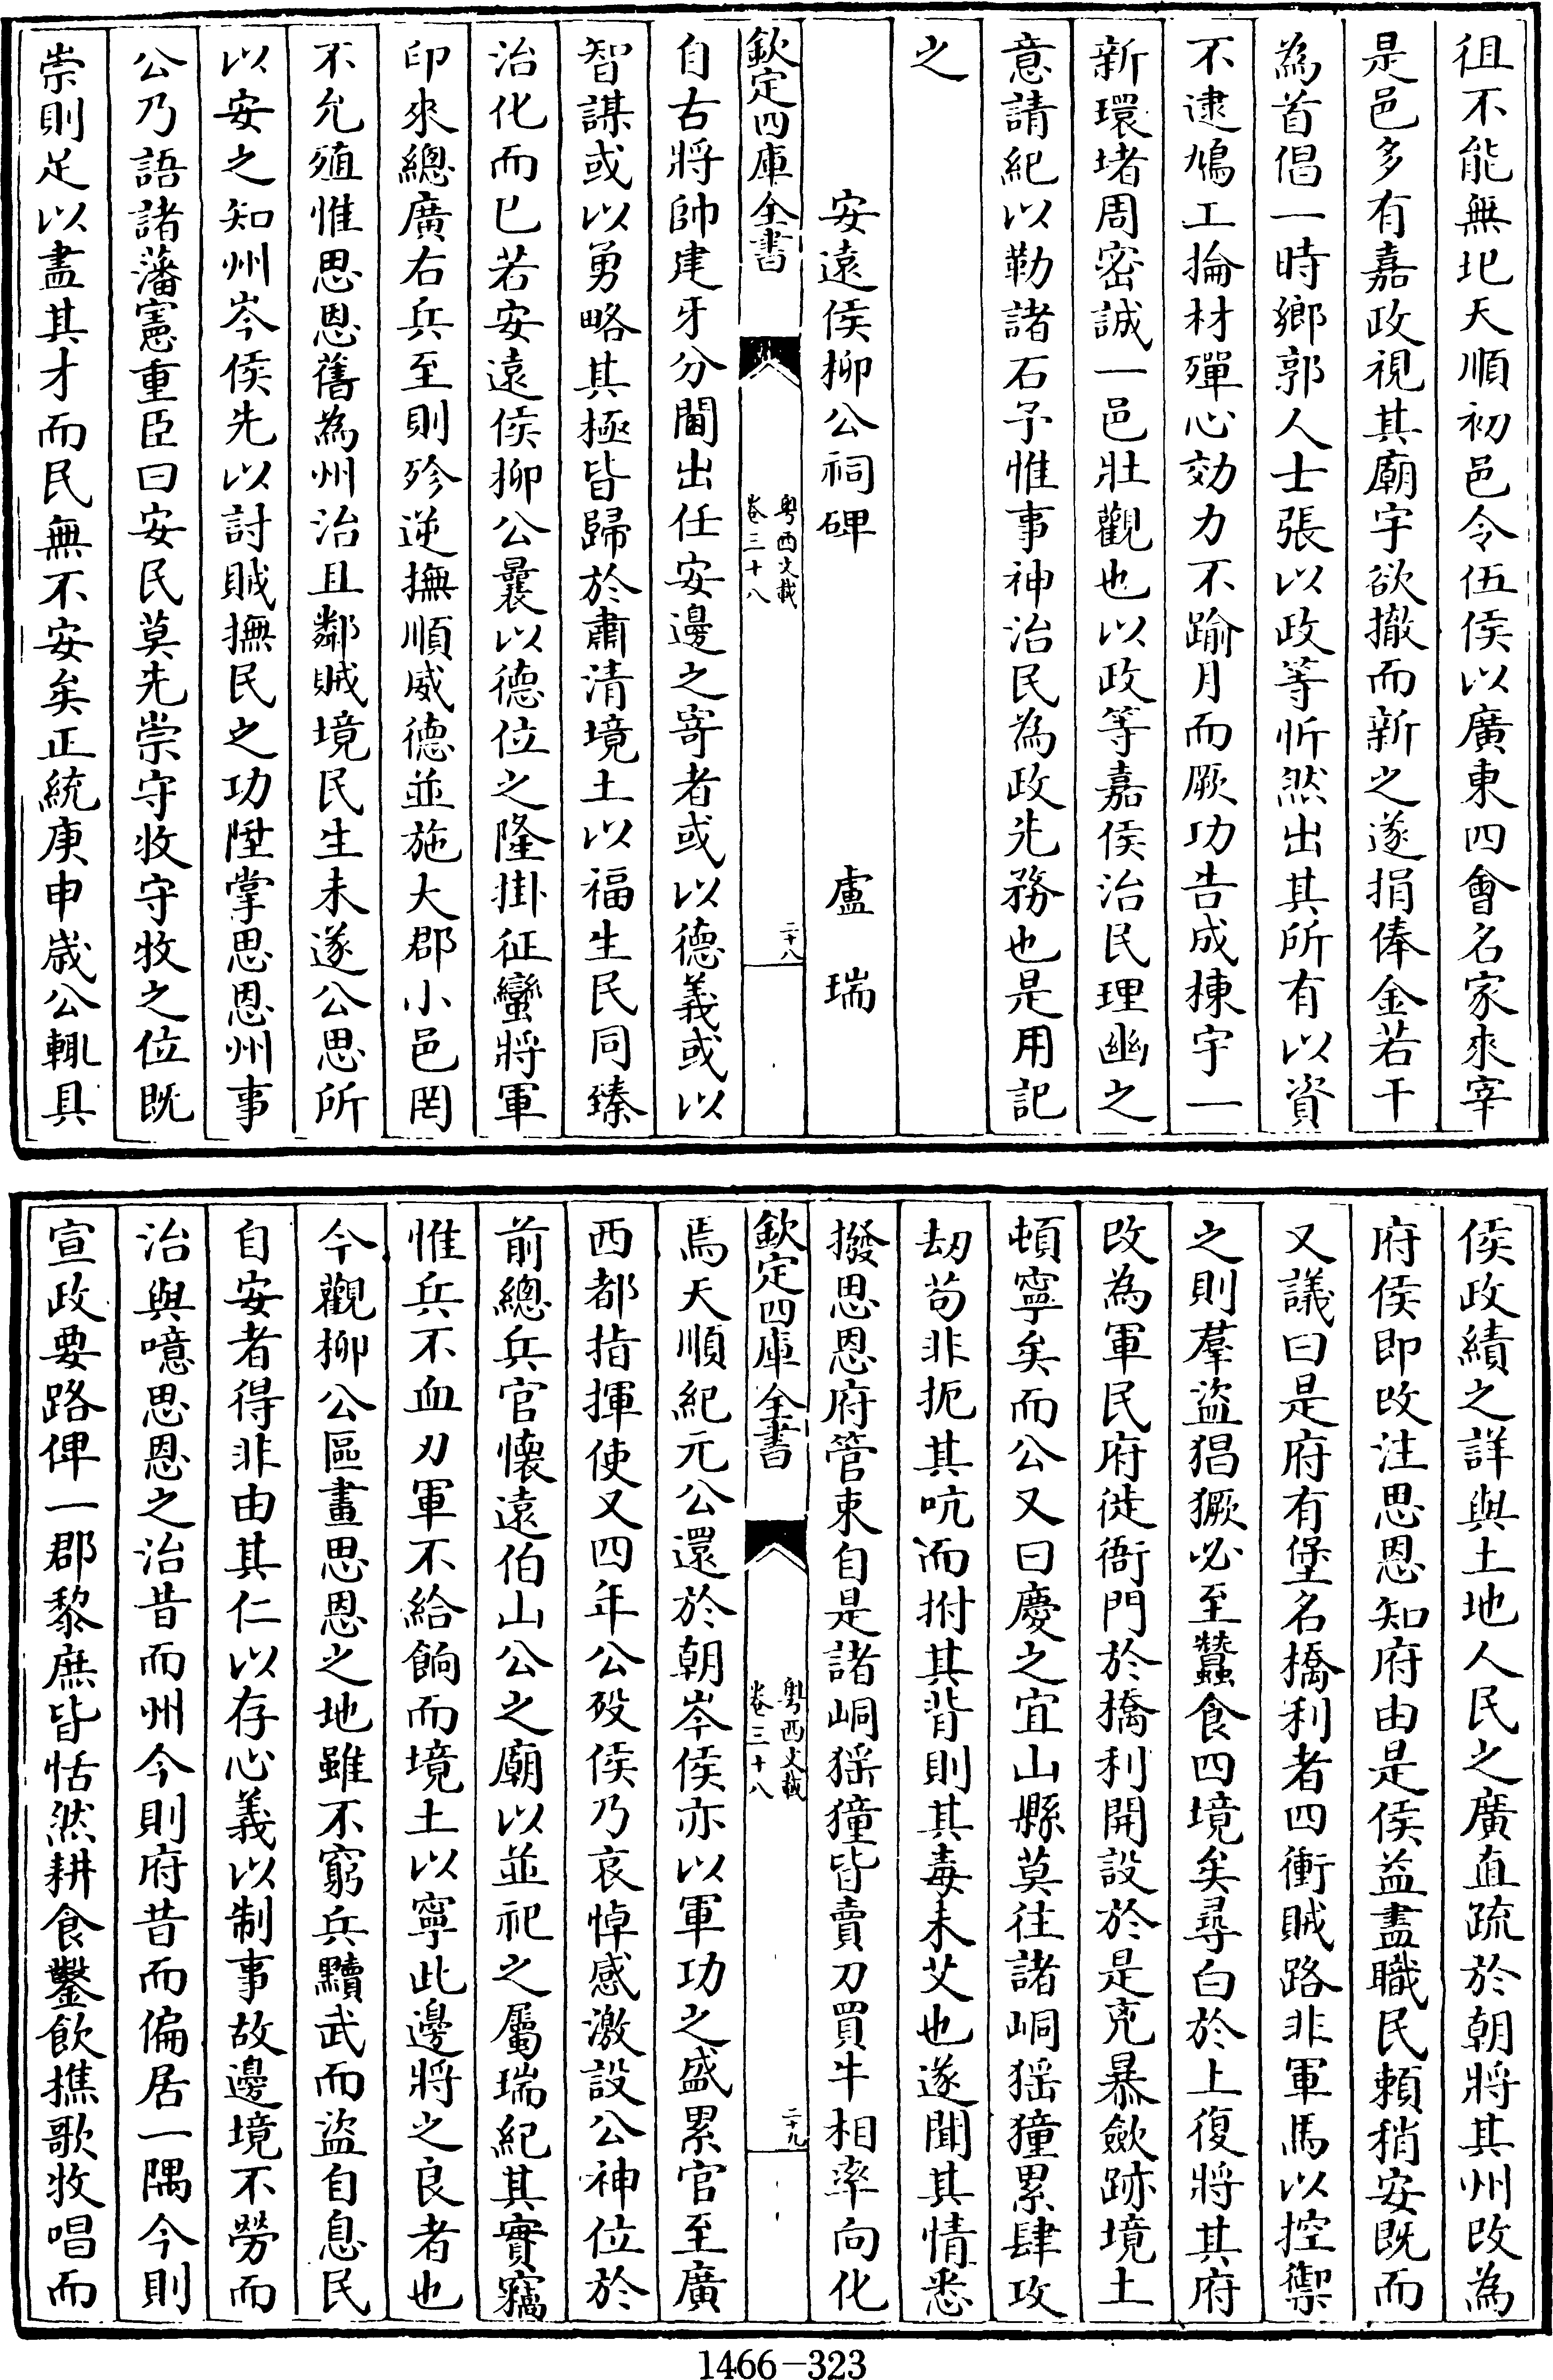 徂不能無圮天順初邑令伍侯以廣東四會名家來宰
是邑多有嘉政視其廟宇欲撤而新之遂捐俸金若干
為首倡一時鄉郭人士張以政等忻然出其所有以資
不逮鳩工掄材殫心効力不踰月而厥功告成棟宇一
新環堵周密誠一邑壯觀也以政等嘉侯治民理幽之
意請紀以勒諸石予惟事神治民為政先務也是用記
之
安遠侯柳公祠碑 盧瑞
欽定四庫全書 粤西文載 卷三十八 二十八
自古將帥建牙分閫出任安邊之寄者或以德義或以
智謀或以勇略其極皆歸於肅清境土以福生民同臻
治化而已若安遠侯柳公曩以德位之隆掛征蠻將軍
印來總廣右兵至則殄逆撫順威德並施大郡小邑罔
不允殖惟思恩舊為州治且鄰賊境民生未遂公思所
以安之知州岑侯先以討賊撫民之功陞掌思恩州事
公乃語諸藩憲重臣曰安民莫先崇守牧守牧之位既
崇則足以盡其才而民無不安矣正統庚申歳公輒具
侯政績之詳與土地人民之廣直疏於朝將其州改為
府侯即改注思恩知府由是侯益盡職民頼稍安既而
又議曰是府有堡名橋利者四衝賊路非軍馬以控禦
之則羣盜猖獗必至蠶食四境矣尋白於上復將其府
改為軍民府徙衙門於橋利開設於是兇暴歛跡境土
頓寧矣而公又曰慶之宜山縣莫往諸峒猺獞累肆攻
刼苟非扼其吭而拊其背則其毒未艾也遂聞其情悉
撥思恩府管束自是諸峒猺獞皆賣刀買牛相率向化
欽定四庫全書 粤西文載 卷三十八 二十九
焉天順紀元公還於朝岑侯亦以軍功之盛累官至廣
西都指揮使又四年公殁侯乃哀悼感激設公神位於
前總兵官懷遠伯山公之廟以並祀之屬瑞紀其實竊
惟兵不血刃軍不給餉而境土以寧此邊將之良者也
今觀柳公區畫思恩之地雖不窮兵黷武而盜自息民
自安者得非由其仁以存心義以制事故邊境不勞而
治與噫思恩之治昔而州今則府昔而偏居一隅今則
宣政要路俾一郡黎庶皆恬然耕食鑿飲樵歌牧唱而
1466-323